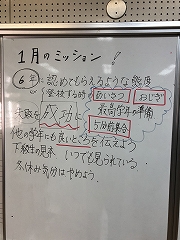 1月のミッション!
6年 認めてもらえるような態度
登校する時 あいさつ おじぎ
最高学年の準備
大縄を成功に 5分前集合
他の学年にも良いところを伝えよう
下級生の見本 いつでも見られている
冬休み気分はやめよう。